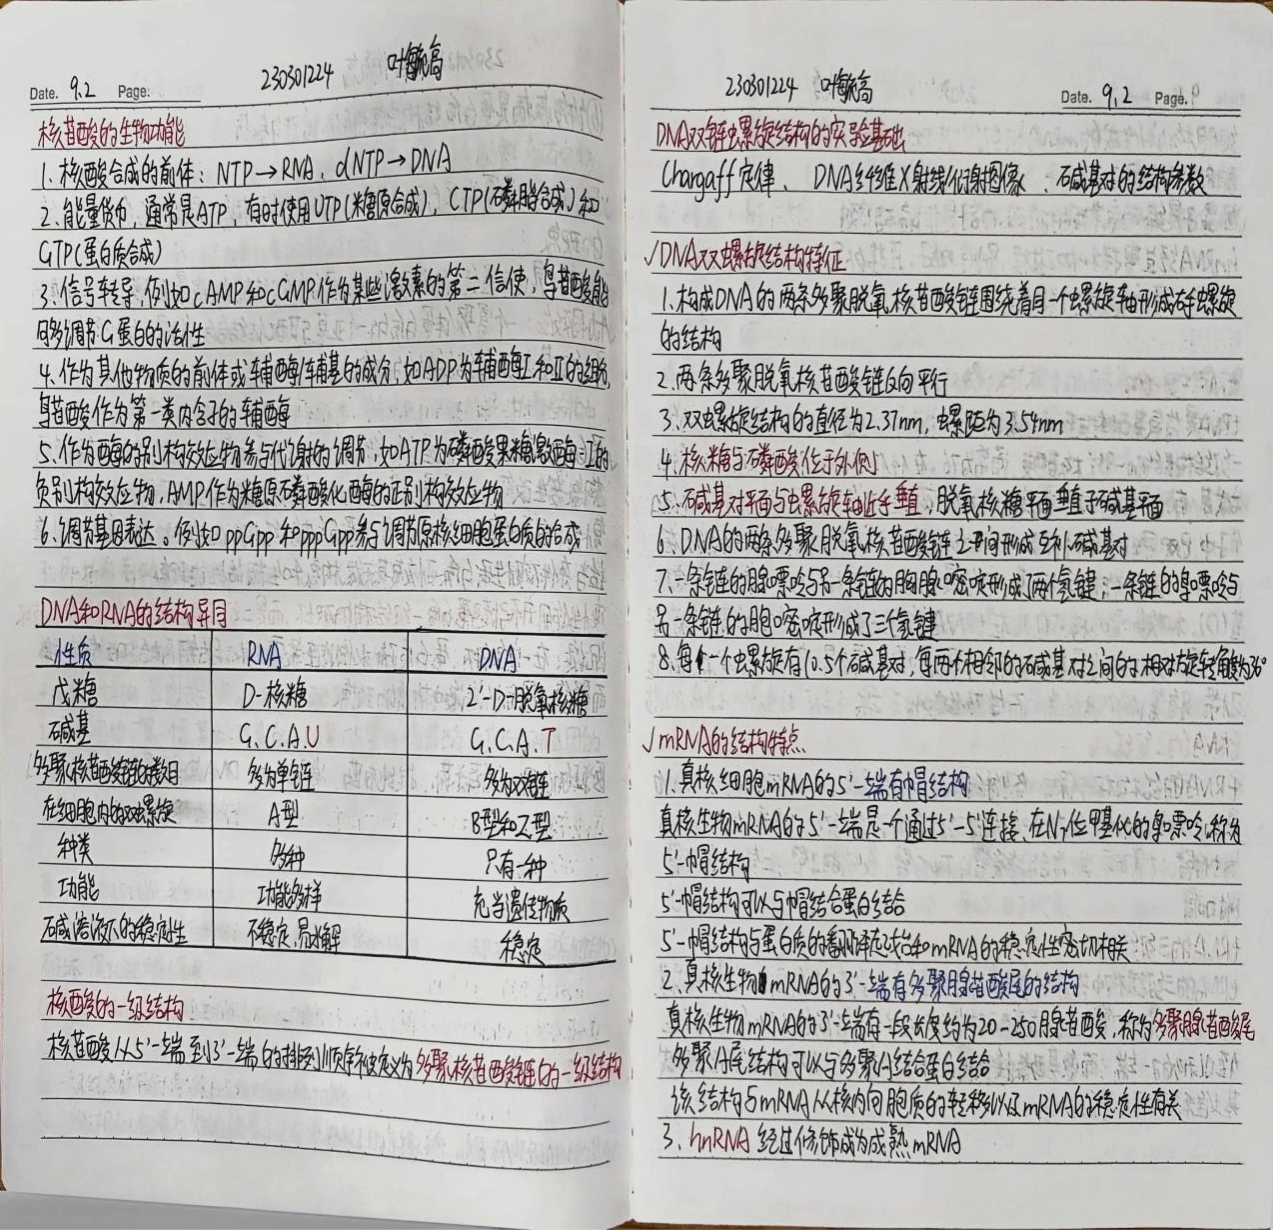 Date. 9.2 Page: 230301224 叶毓高
核苷酸的生物功能
1. 核酸合成的前体：NTP→RNA，dNTP→DNA
2. 能量货币，通常是ATP，有时使用UTP(糖原合成)，CTP(磷脂合成)和
GTP(蛋白质合成)
3. 信号转导，例如cAMP和cGMP作为某些激素的第二信使，鸟苷酸能
够调节G蛋白的活性
4. 作为其他物质的前体或辅酶/辅基的成分，如ADP为辅酶I和II的组分，
鸟苷酸作为第一类内含子的辅酶
5. 作为酶的别构效应物参与代谢的调节，如ATP为磷酸果糖激酶-1的
负别构效应物，AMP作为糖原磷酸化酶的正别构效应物
6. 调节基因表达。例如ppGpp和pppGpp参与调节原核细胞蛋白质的合成
DNA和RNA的结构异同
性质 RNA DNA
戊糖 D-核糖 2'-D-脱氧核糖
碱基 G.C.A.U G.C.A.T
多聚核苷酸链的数目 多为单链 多为双链
在细胞内的双螺旋 A型 B型和Z型
种类 多种 只有一种
功能 功能多样 充当遗传物质
碱溶液下的稳定性 不稳定，易水解 稳定
核酸的一级结构
核苷酸从5'-端到3'-端的排列顺序被定义为多聚核苷酸链的一级结构
230301224 叶毓高 Date. 9.2 Page.
DNA双链螺旋结构的实验基础
Chargaff定律、DNA纤维X射线衍射图像、碱基对的结构参数
√DNA双螺旋结构特征
1. 构成DNA的两条多聚脱氧核苷酸链围绕着同一个螺旋轴形成右手螺旋
的结构
2. 两条多聚脱氧核苷酸链反向平行
3. 双螺旋结构的直径为2.37nm，螺距为3.54nm
4. 核糖与磷酸位于外侧
5. 碱基对平面与螺旋轴近乎垂直，脱氧核糖平面垂直于碱基平面
6. DNA的两条多聚脱氧核苷酸链之间形成互补碱基对
7. 一条链的腺嘌呤与另一条链的胸腺嘧啶形成了两个氢键；一条链的鸟嘌呤与
另一条链的胞嘧啶形成了三个氢键
8. 每一个螺旋有10.5个碱基对，每两个相邻的碱基对之间的相对旋转角度为36°
√mRNA的结构特点
1. 真核细胞mRNA的5'-端有帽结构
真核生物mRNA的5'-端是一个通过5'-5'连接、在N7位甲基化的鸟嘌呤，称为
5'-帽结构
5'-帽结构可以与帽结合蛋白结合
5'-帽结构与蛋白质的翻译起始和mRNA的稳定性密切相关
2. 真核生物mRNA的3'-端有多聚腺苷酸尾的结构
真核生物mRNA的3'-端有一段长度约为20-250腺苷酸，称为多聚腺苷酸尾
多聚A尾结构可以与多聚A结合蛋白结合
该结构与mRNA从核内向胞质的转移以及mRNA的稳定性有关
3. hnRNA经过修饰成为成熟mRNA